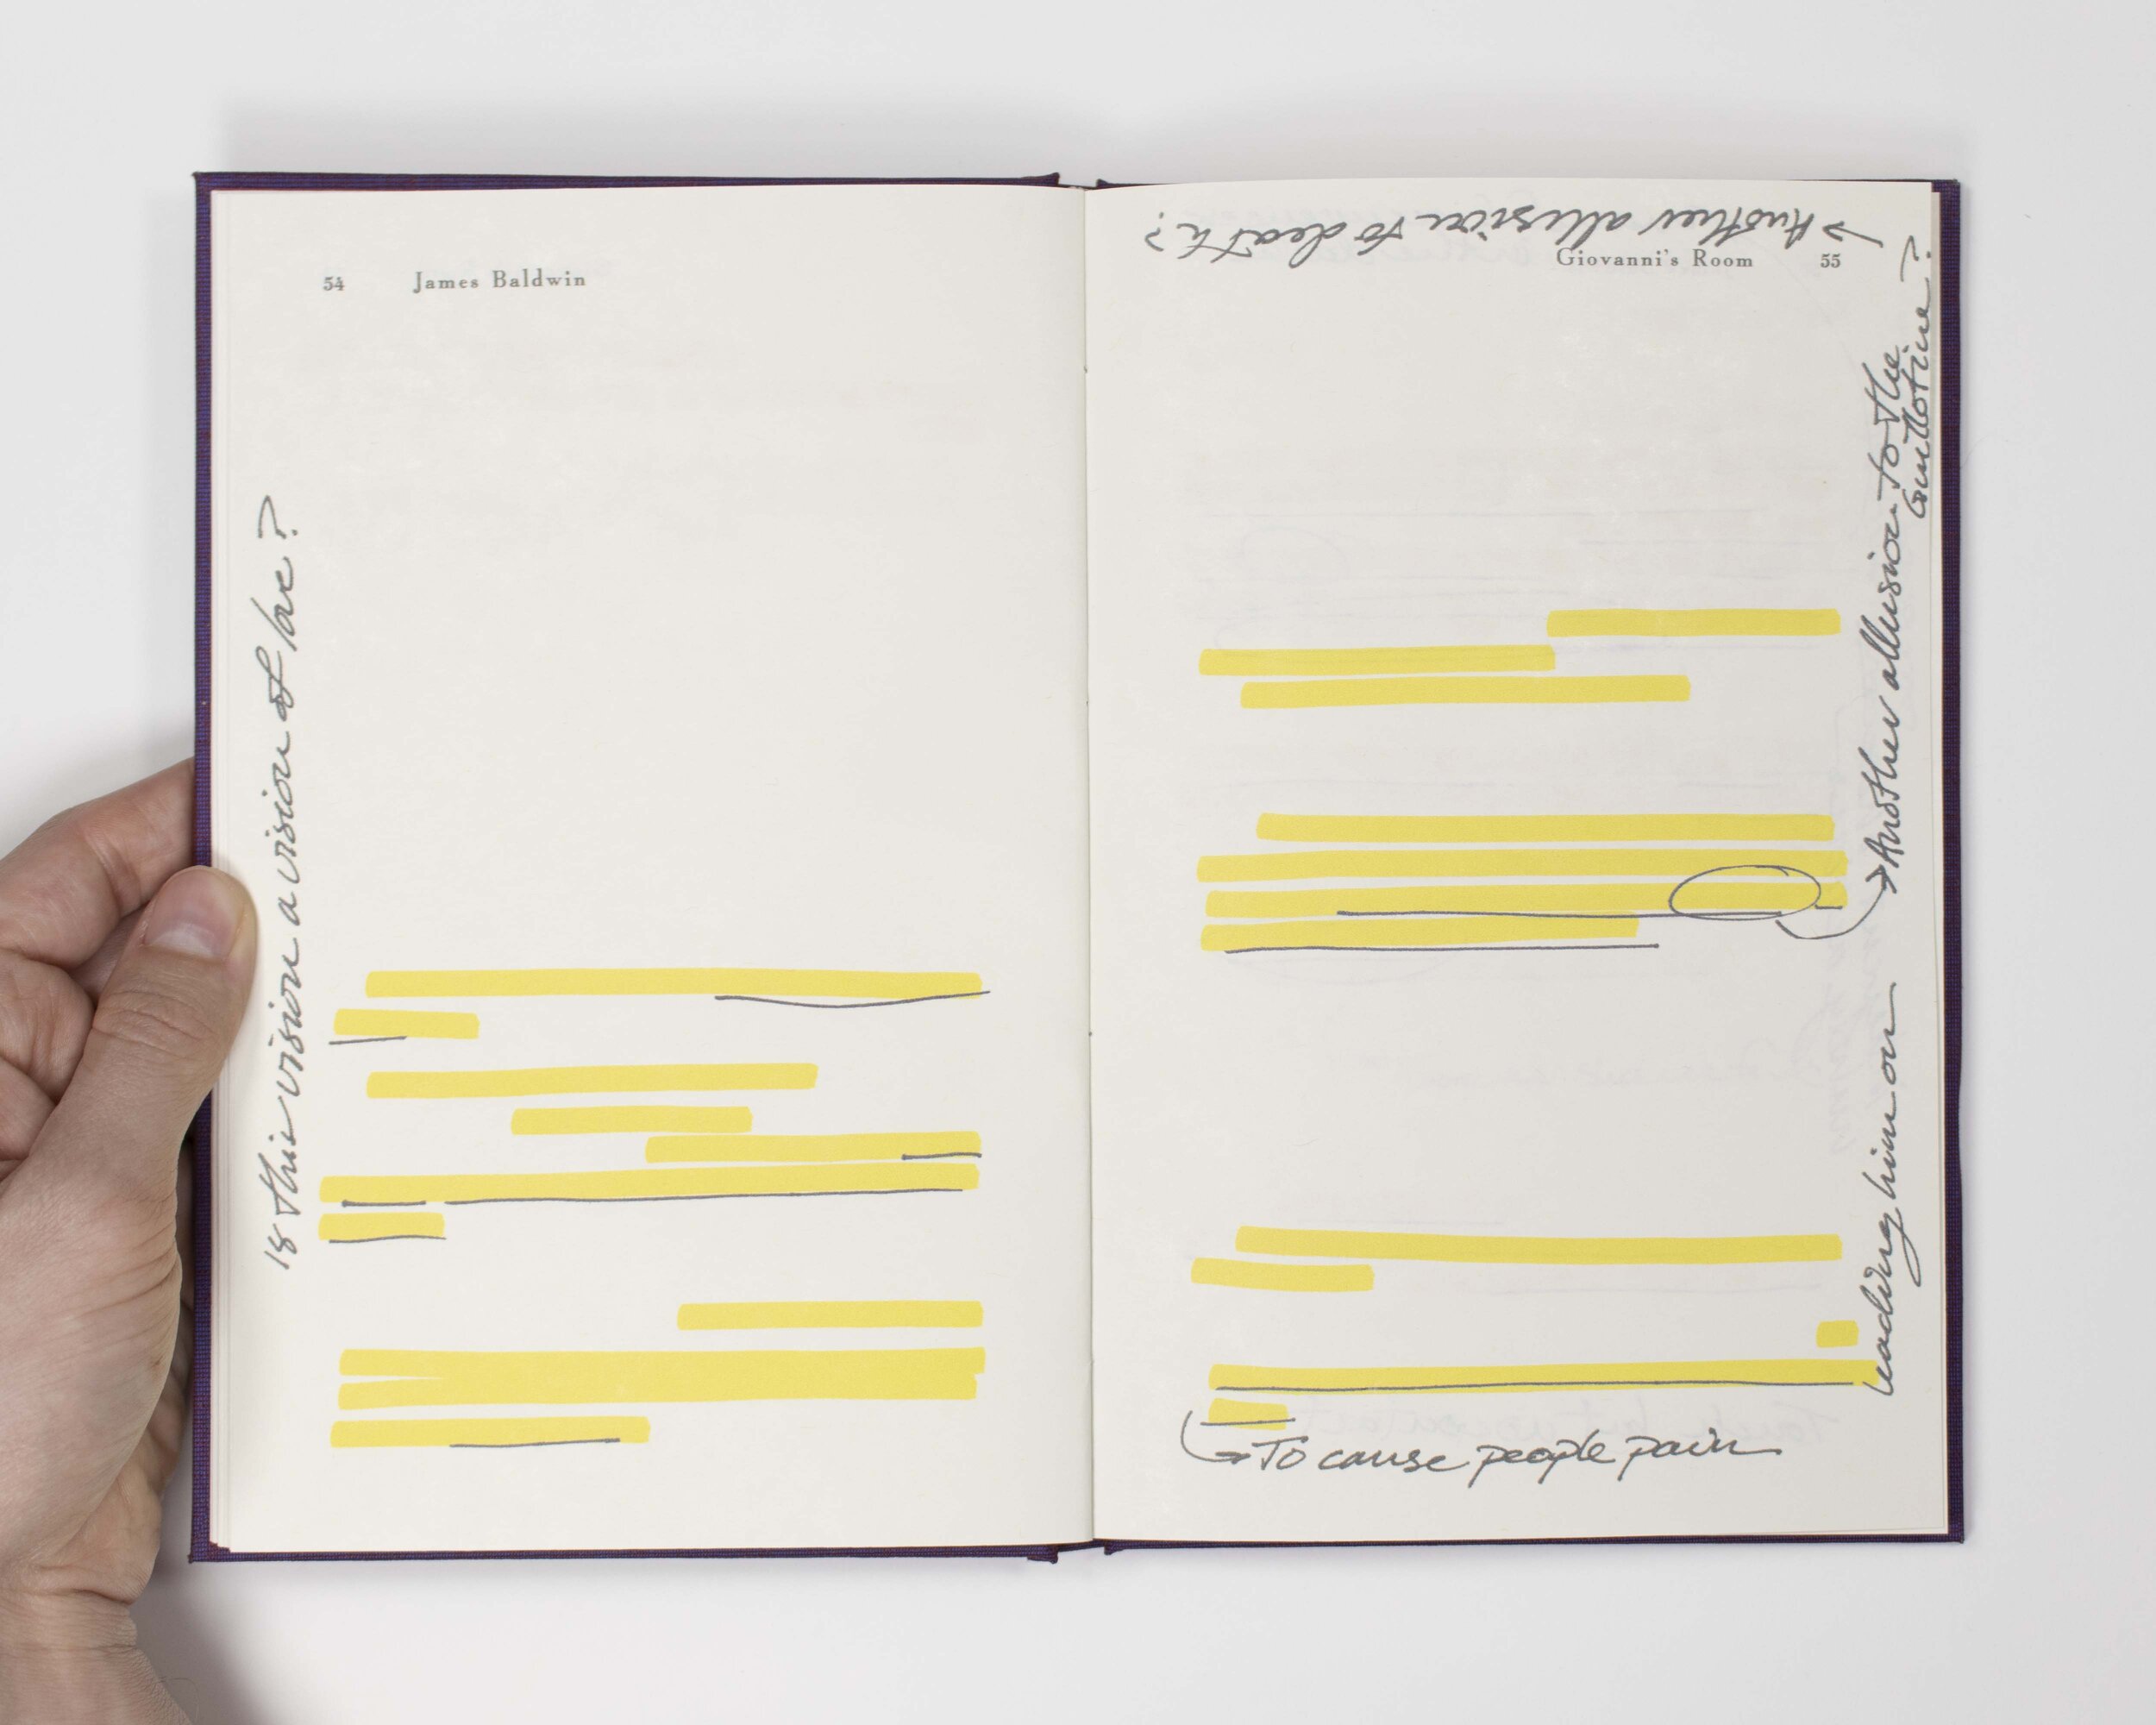 54 James Baldwin
Is this vision a vision of love?
→Another allusion to death?
Giovanni's Room 55
→Another allusion to the
Guillotine?
Leading him on
→To cause people pain